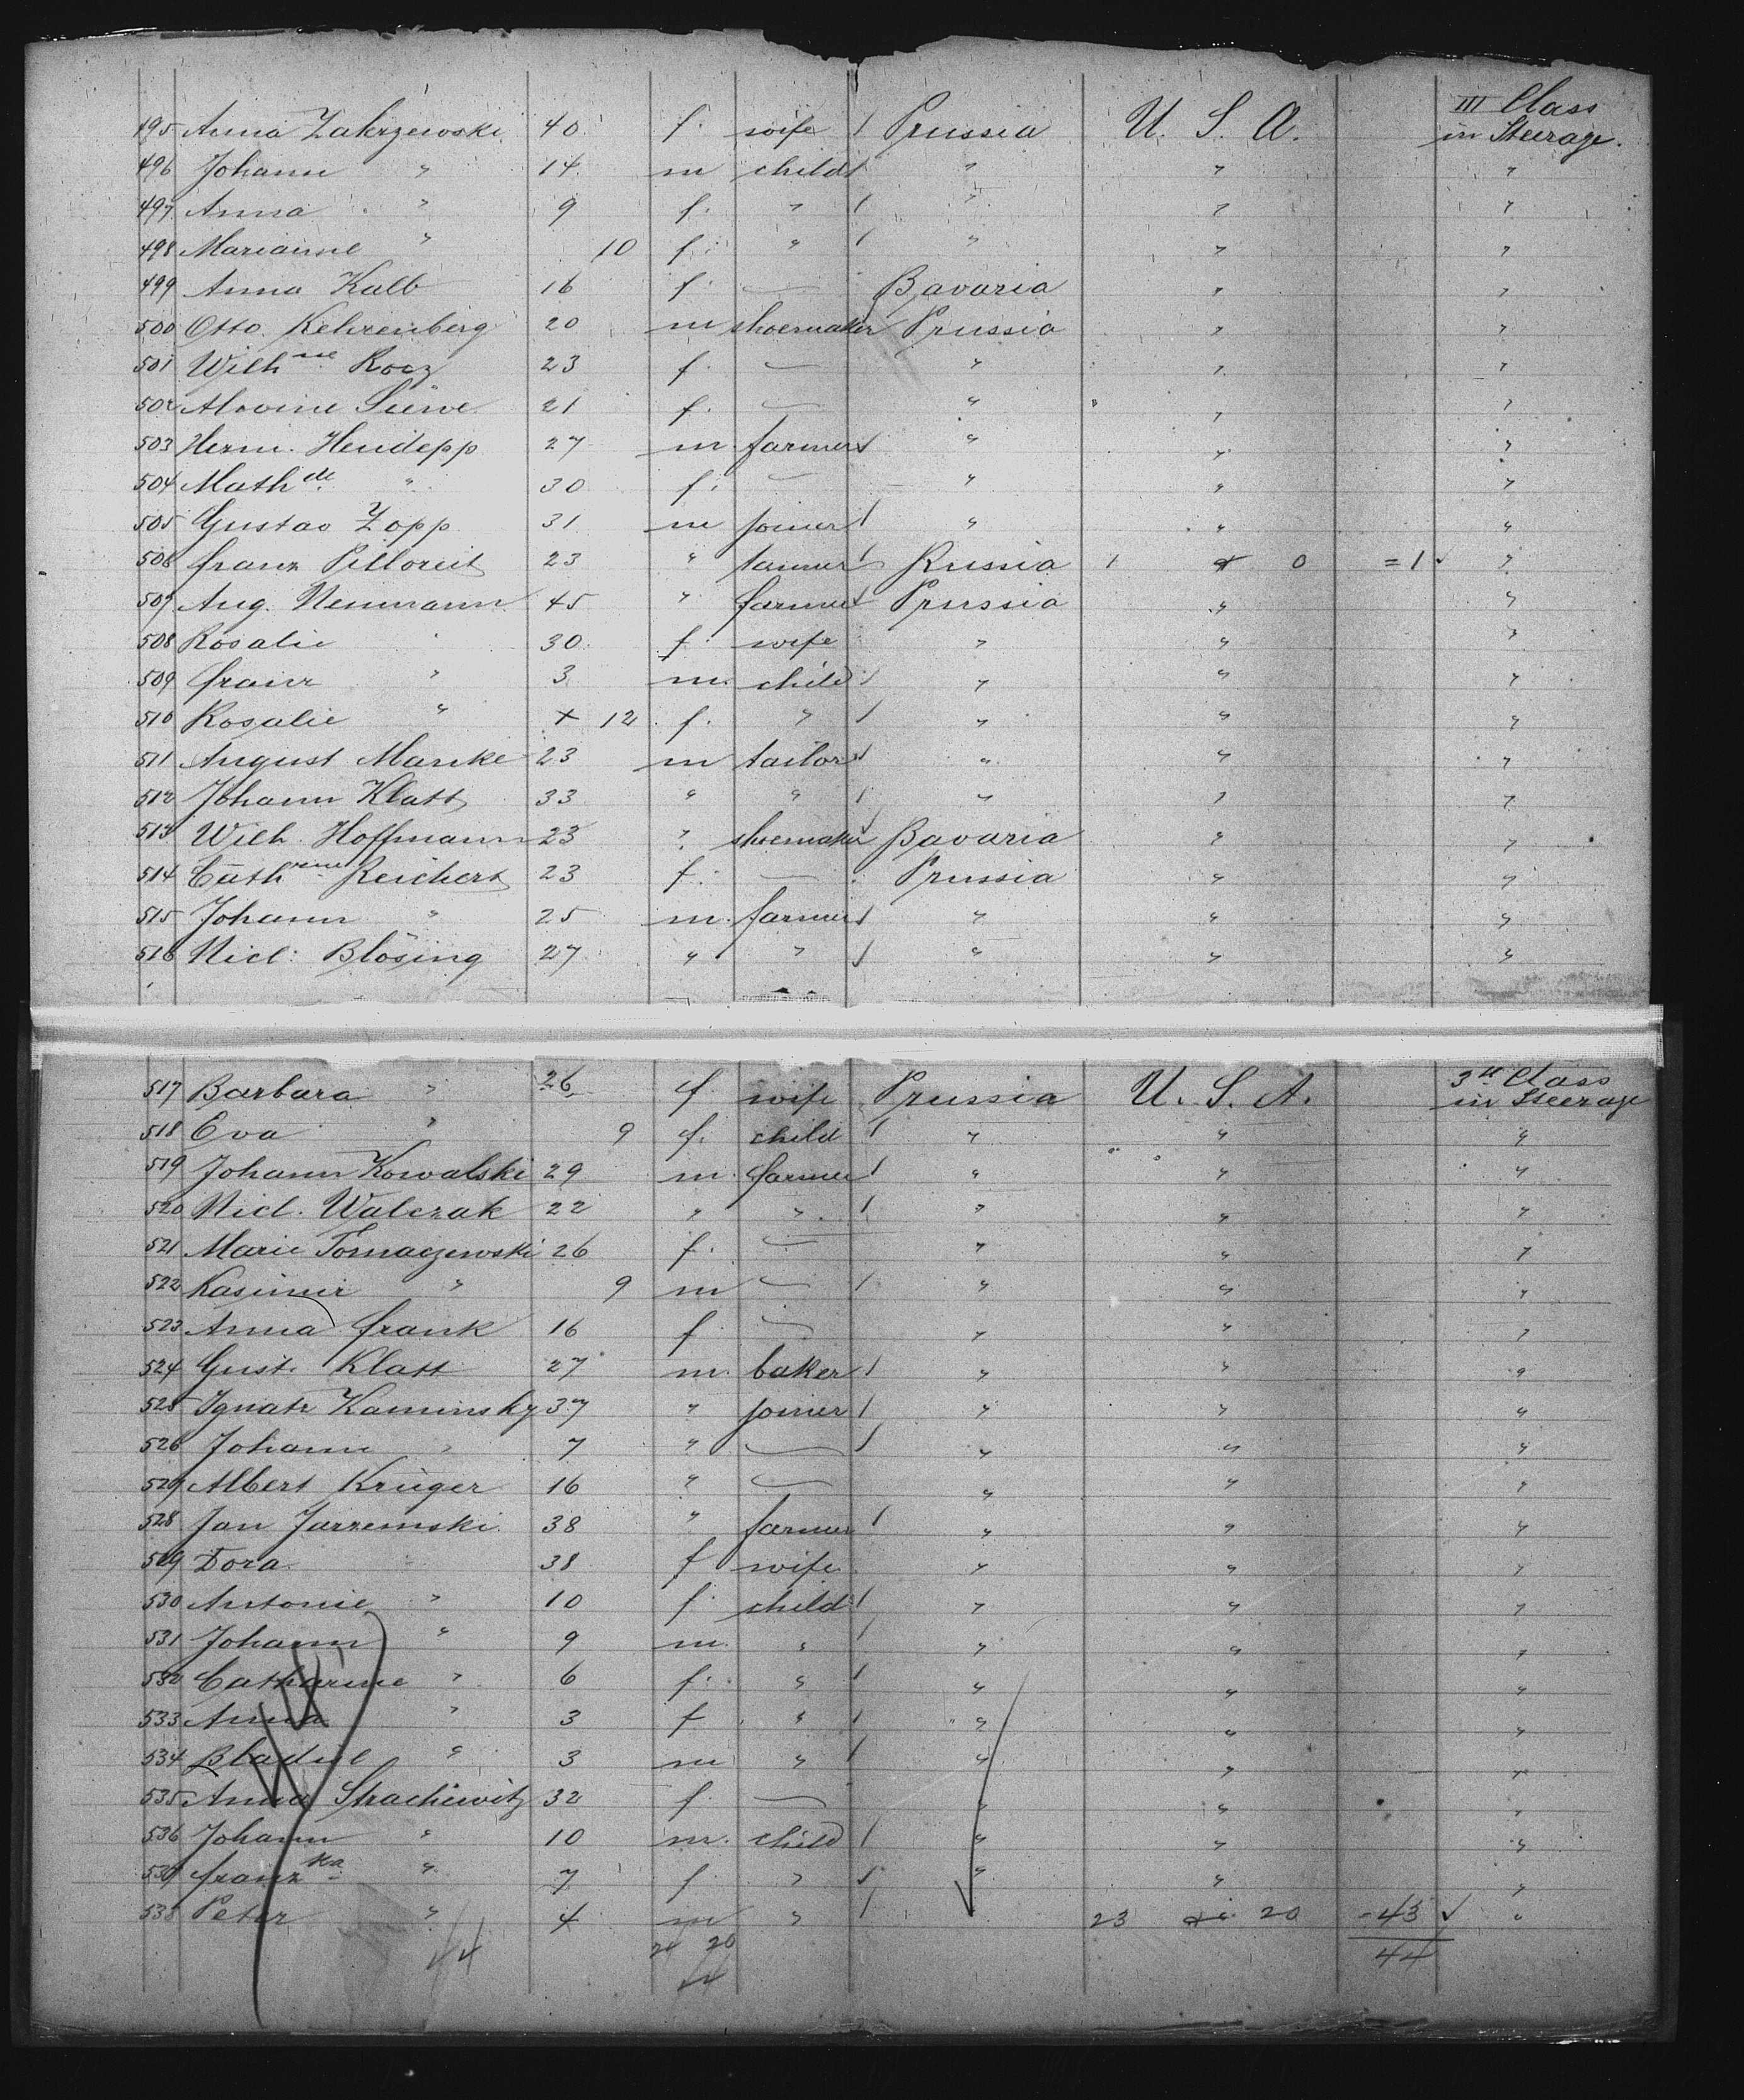 495 Anna Zakrzewski 40 f. wife / Prussia U. S. A. III Class in Steerage.
496 Johann " 14 m child / " " "
497 Anna " 9 f. " / " " "
498 Marianne " 10 f. " / " " "
499 Anna Kalb 16 f. — Bavaria " "
500 Otto Kehrenberg 20 m shoemaker Prussia " "
501 Wilh.ne 23 f. — " " "
502 21 f. — " " "
503 Herm. Heudepp 27 m. farmer / " " "
504 Math.de " 30 f. — " " "
505 Gustav Zopp 31 m joiner / " " "
506 Franz 23 " / Russia 1 0 =1 ✓ "
507 Aug. Neumann 45 " farmer / Prussia " "
508 Rosalie " 30 f. wife " " "
509 Franz " 3 m. child / " " "
510 Rosalie " 12 f. " / " " "
511 August Manke 23 m tailor / " " "
512 Johann Klatt 33 " " / " " "
513 Wilh. Hoffmann 23 " shoemaker / Bavaria " "
514 Cathrine Reichert 23 f. — Prussia " "
515 Johann " 25 m. farmer / " " "
516 Nicl: Blösing 27 " " / " " "
517 Barbara " 26 f. wife Prussia U. S. A. 3d Class in Steerage
518 Eva " 9 f. child / " " "
519 Johann Kowalski 29 m. farmer / " " "
520 Nicl. Walczak 22 " " / " " "
521 Marie Tomaczewski 26 f. — " " "
522 Kasimir " 9 m — / " " "
523 Anna Frank 16 f — " " "
524 Gust. Klatt 27 m. baker / " " "
525 Ignatz Kaminsky 37 " joiner / " " "
526 Johann " 7 " — / " " "
527 Albert Krüger 16 " — " " "
528 Jan Jarzemski 38 " farmer / " " "
529 Dora " 38 f wife " " "
530 Antonie " 10 f. child / " " "
531 Johann " 9 m. " / " " "
532 Catharine " 6 f. " / " " "
533 Anna " 3 f " / " " "
534 " 3 m " / " " "
535 Anna Strachewitz 32 f. — " " "
536 Johann " 10 m. child / " " "
537 Franzka " 7 f. " / " " "
538 Peter " 4 m " / 23 20 =43 ✓ "
44 24 20 44
44